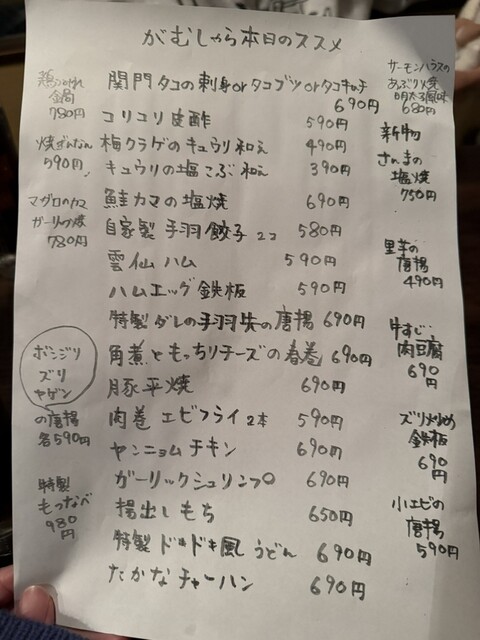 がむしゃら本日のススメ
関門タコの刺身orタコブツorタコキムチ
690円
コリコリ皮酢 590円
梅クラゲのキュウリ和え 490円
キュウリの塩こぶ和え 390円
鮭カマの塩焼 690円
自家製 手羽餃子 2コ 580円
雲仙ハム 590円
ハムエッグ鉄板 590円
特製ダレの手羽先の唐揚 690円
角煮ともっちりチーズの春巻 690円
豚平焼 690円
肉巻エビフライ2本 590円
ヤンニョムチキン 690円
ガーリックシュリンプ 690円
揚出しもち 650円
特製 ドキドキ風うどん 690円
たかなチャーハン 690円
鶏つみれ
鍋
780円
焼ぎんなん
590円
マグロのカマ
ガーリック焼
780円
ボンジリ
ズリ
ヤゲン
の唐揚
各590円
特製
もつなべ
980
円
サーモンハラスの
あぶり焼
明太子風味
680円
新物
さんまの
塩焼
750円
里芋の
唐揚
490円
牛すじ
肉豆腐
690
円
ズリ炒め
鉄板
690
円
小エビの
唐揚
590円